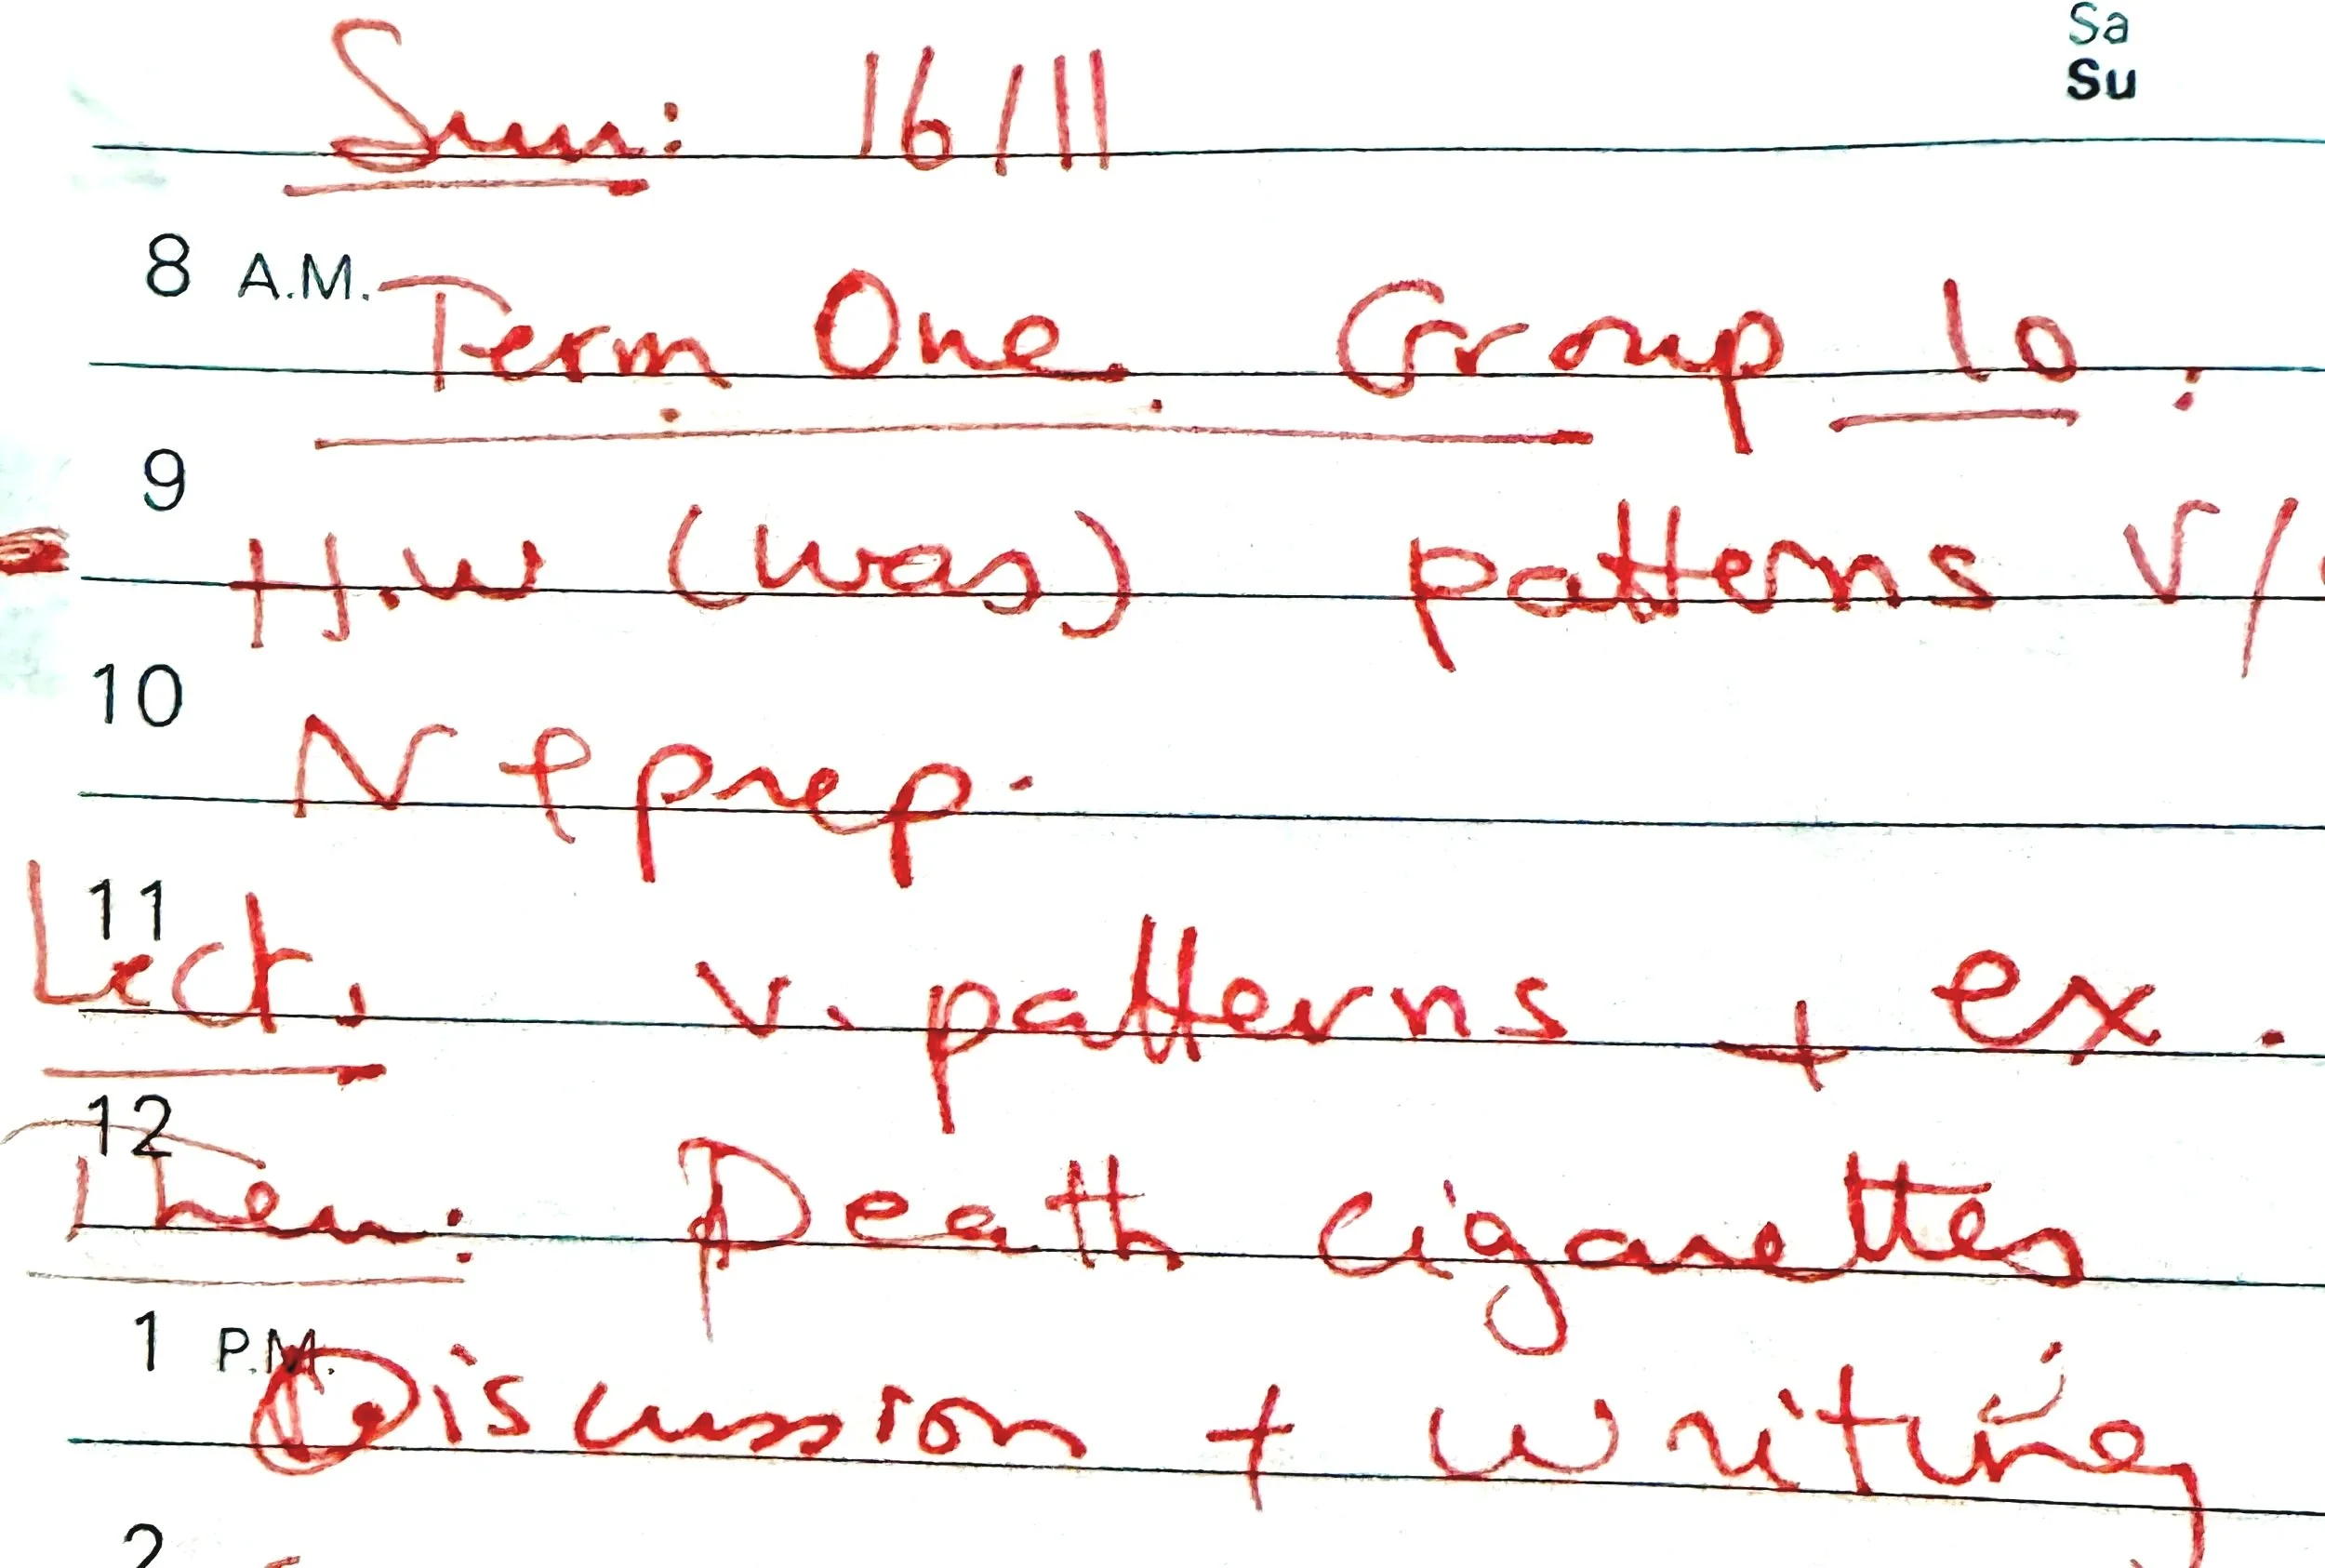 Sa
Su
Sun: 16/11
8 A.M. Term One. Group 10:
9
H.W (was) patterns V/
10
N & prep.
11
Lect. v. patterns + ex.
12
Then: Death cigarettes
1 P.M. Discussion + writing
2